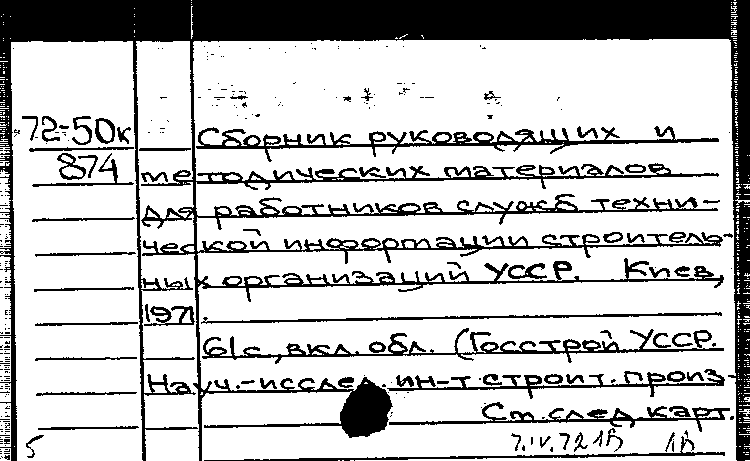 72-50к Сборник руководящих и
874 методических материалов
для работников служб техни-
ческой информации строитель-
ных организаций УССР. Киев,
1971.
61с., вкл. обл. (Госстрой УССР.
Науч.-исслед. ин-т строит. произ-
См. след. карт.
5 7.IV.72 1В 1В